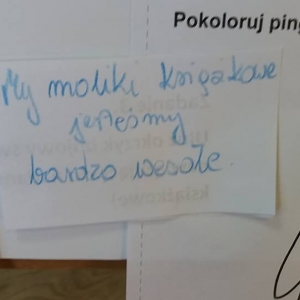 Pokoloruj ping
My moliki książkowe
jesteśmy
bardzo wesołe.